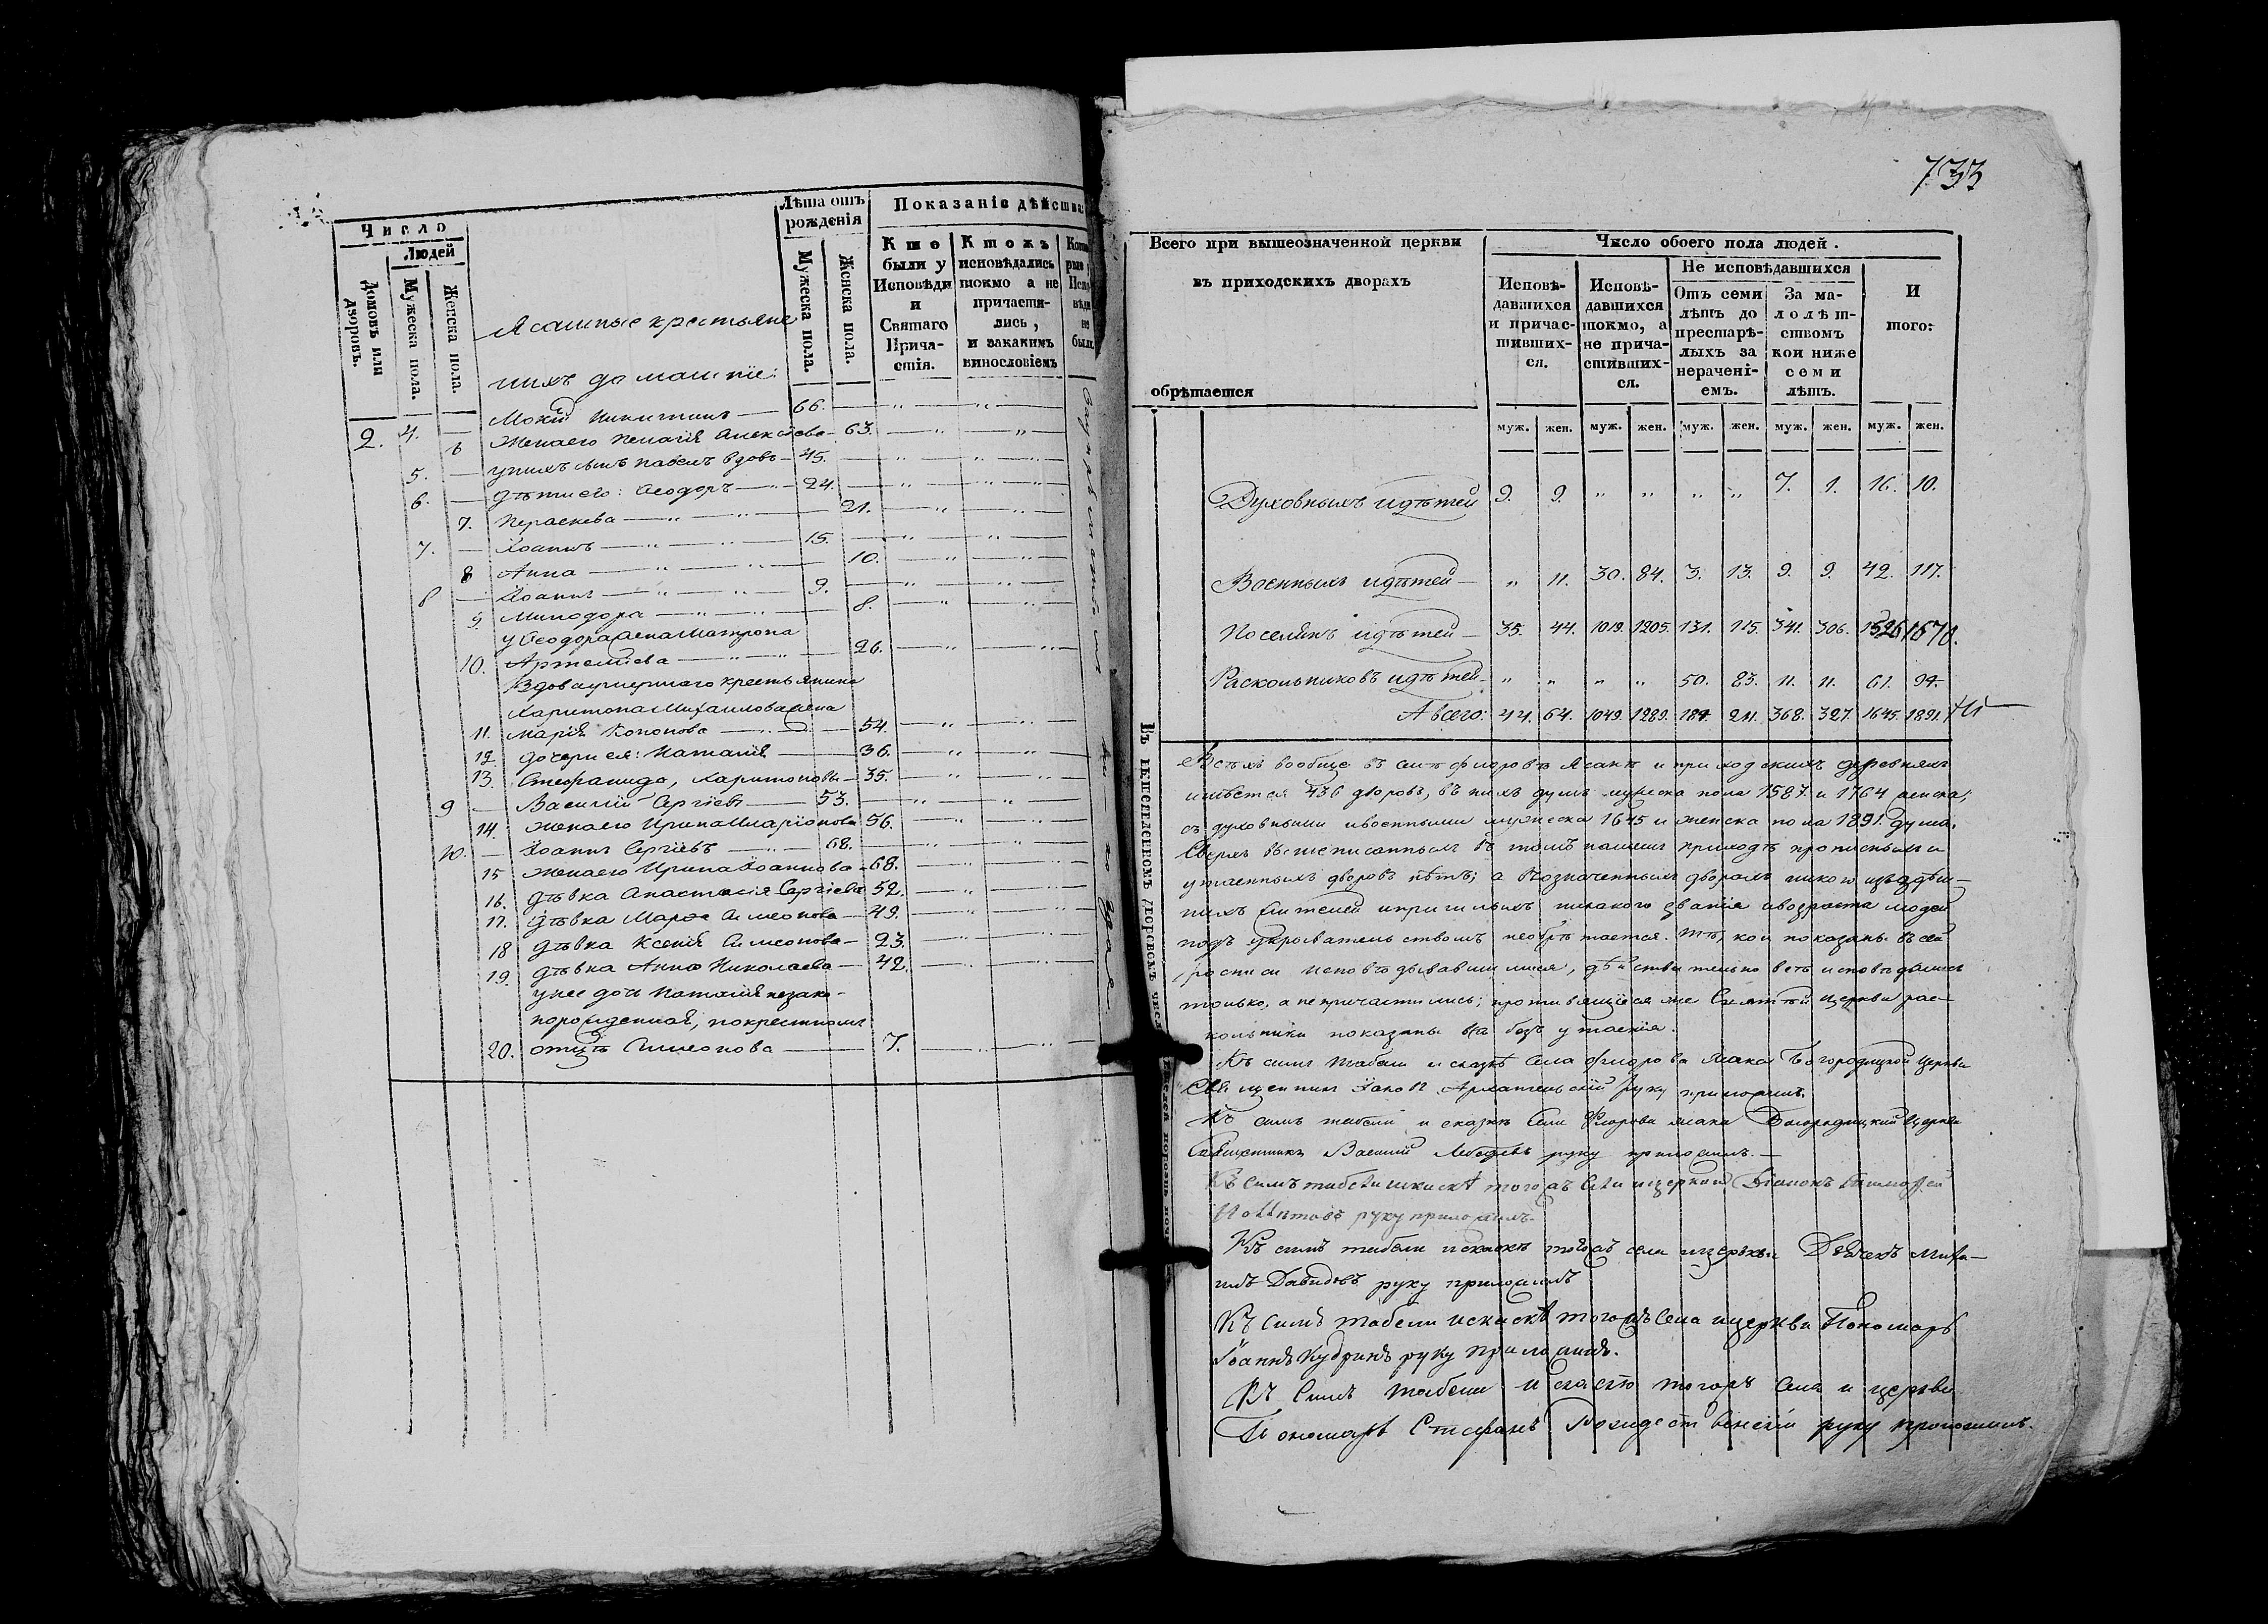 Число
Людей
Домовъ или дворовъ.
Мужеска пола.
Женска пола.
Лѣта отъ рожденія
Мужеска пола.
Женска пола.
Показаніе дѣйства
Кто были у Исповѣди и Святаго Причастія.
Ктожъ исповѣдались токмо а не причастились, и закакимъ винословіемъ
Ясашные крестьяне
ихъ домашніе:
Мокій Никитинъ — 66.
2. 4. 6 Жена его Пелагія Алексѣева — 63.
5. — у нихъ сынъ Павелъ вдовъ — 45.
6. — Дѣти его: Ѳеодоръ — 24.
7. Параскева — 21.
7. — Іоаннъ — 15.
8 Анна — 10.
8 — Іоаннъ — 9.
9. Минодора — 8.
у Ѳеодора жена Матрона
10. Артеміева — 26.
Вдова умершаго крестьянина
Харитона Михайлова жена
11. Марія Кононова — 54.
12. дочери ея: Наталія — 36.
13. Стефанида, Харитоновы — 35.
9 — Василій Сергіевъ — 53.
14. Жена его Ирина Иларіонова 56.
10. — Іоаннъ Сергіевъ — 68.
15 Жена его Ирина Іоаннова — 68.
16. Дѣвка Анастасія Сергіева 52.
17. Дѣвка Марѳа Симеонова — 49.
18 Дѣвка Ксенія Симеонова — 23.
19. Дѣвка Анна Николаева — 42.
у нее дочь Наталія незако-
норожденная, по крестномъ
20. отцѣ Симеонова — 7.
733
Всего при вышеозначенной церкви
въ приходскихъ дворахъ
обрѣтается
Число обоего пола людей.
Исповѣдавшихся и причастившихся.
Исповѣдавшихся токмо, а не причастившихся.
Не исповѣдавшихся
Отъ семи лѣтъ до престарѣлыхъ за нераченіемъ.
За малолѣтствомъ кои ниже семи лѣтъ.
И того:
муж. жен. муж. жен. муж. жен. муж. жен. муж. жен.
Духовныхъ и дѣтей 9. 9. „ „ „ „ 7. 1. 16. 10.
Военныхъ и дѣтей — „ 11. 30. 84. 3. 13. 9. 9. 42. 117.
Поселянъ и дѣтей — 35. 44. 1019. 1205. 131. 115. 341. 306. 1526. 1670.
Раскольниковъ и дѣтей — „ „ „ „ 50. 83. 11. 11. 61. 94.
А всего: 44. 64. 1049. 1289. 184. 211. 368. 327. 1645. 1891.
Всѣхъ вообще въ селѣ и приходскихъ деревняхъ
имѣется 436 дворовъ, въ нихъ душъ мужеска пола 1587. и 1764 женска;
съ духовными и военными мужеска 1645 и женска пола 1891. душа.
Сверхъ вышеписанныхъ въ томъ нашемъ приходѣ прописныхъ и
утаенныхъ дворовъ нѣтъ; а въ означенныхъ дворахъ никого изъ здѣш-
нихъ жителей и пришлыхъ никакого званія и возраста людей
подъ укрывательствомъ необрѣтается. Тѣ, кои показаны въ сей
росписи исповѣдывавшимися, дѣйствительно всѣ исповѣдались
только, а не причастились; противящіеся же Святой церкви рас-
кольники показаны всѣ безъ утаенія.
Къ симъ табели и сказкѣ села Богородицкой церкви
Священникъ Іаковъ Архангельскій руку приложилъ.
Къ симъ табели и сказкѣ села Богородицкой церкви
Священникъ Василій Лебедевъ руку приложилъ. —
Къ симъ табели и скаскѣ тогожъ села и церкви Діаконъ
руку приложилъ.
Къ симъ табели и скаскѣ тогожъ села и церкви Дьячекъ Миха-
илъ Давидовъ руку приложилъ
Къ симъ табели и скаскѣ тогожъ села и церкви Пономарь
Іоаннъ Кудринъ руку приложилъ.
Къ симъ табели и скаскѣ тогожъ села и церкви
Пономарь Стефанъ Рождественскій руку приложилъ.